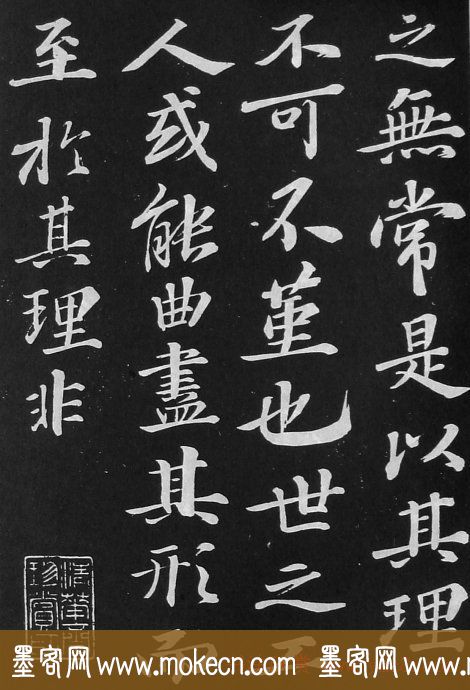 之無常是以其理
不可不堇也世之
人或能曲盡其形而
至於其理非
墨客网 www.mokecn.com 墨客网 www.mokecn.com 墨客网